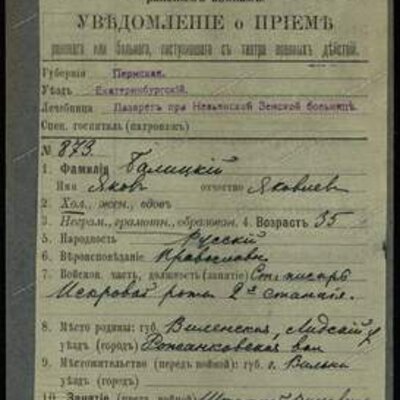 УВѢДОМЛЕНІЕ о ПРІЕМѢ
раненаго или больного, поступившаго съ театра военныхъ дѣйствій.
Губернія Пермская.
Уѣздъ Екатеринбургскій.
Лечебница Лазаретъ при Невьянской Земской больницѣ
Спец. госпиталь (патронажъ)
№ 873.
1. Фамилія Балицкій
Имя Яковъ отчество Яковлев
2. Хол., жен., вдовъ
3. Неграм., грамотн., образован. 4. Возрастъ 35
5. Народность Русскій
6. Вѣроисповѣданіе Православн
7. Войсков. часть, должность (занятіе) Ст. писарь
Искровой роты 2й станціи.
8. Мѣсто родины: губ. Виленская, Лидскій у
уѣздъ (городъ) Рожанковская вол
9. Мѣстожительство (передъ войной): губ. г. Вильна
уѣздъ (городъ)
10. Занятіе (предъ войной)